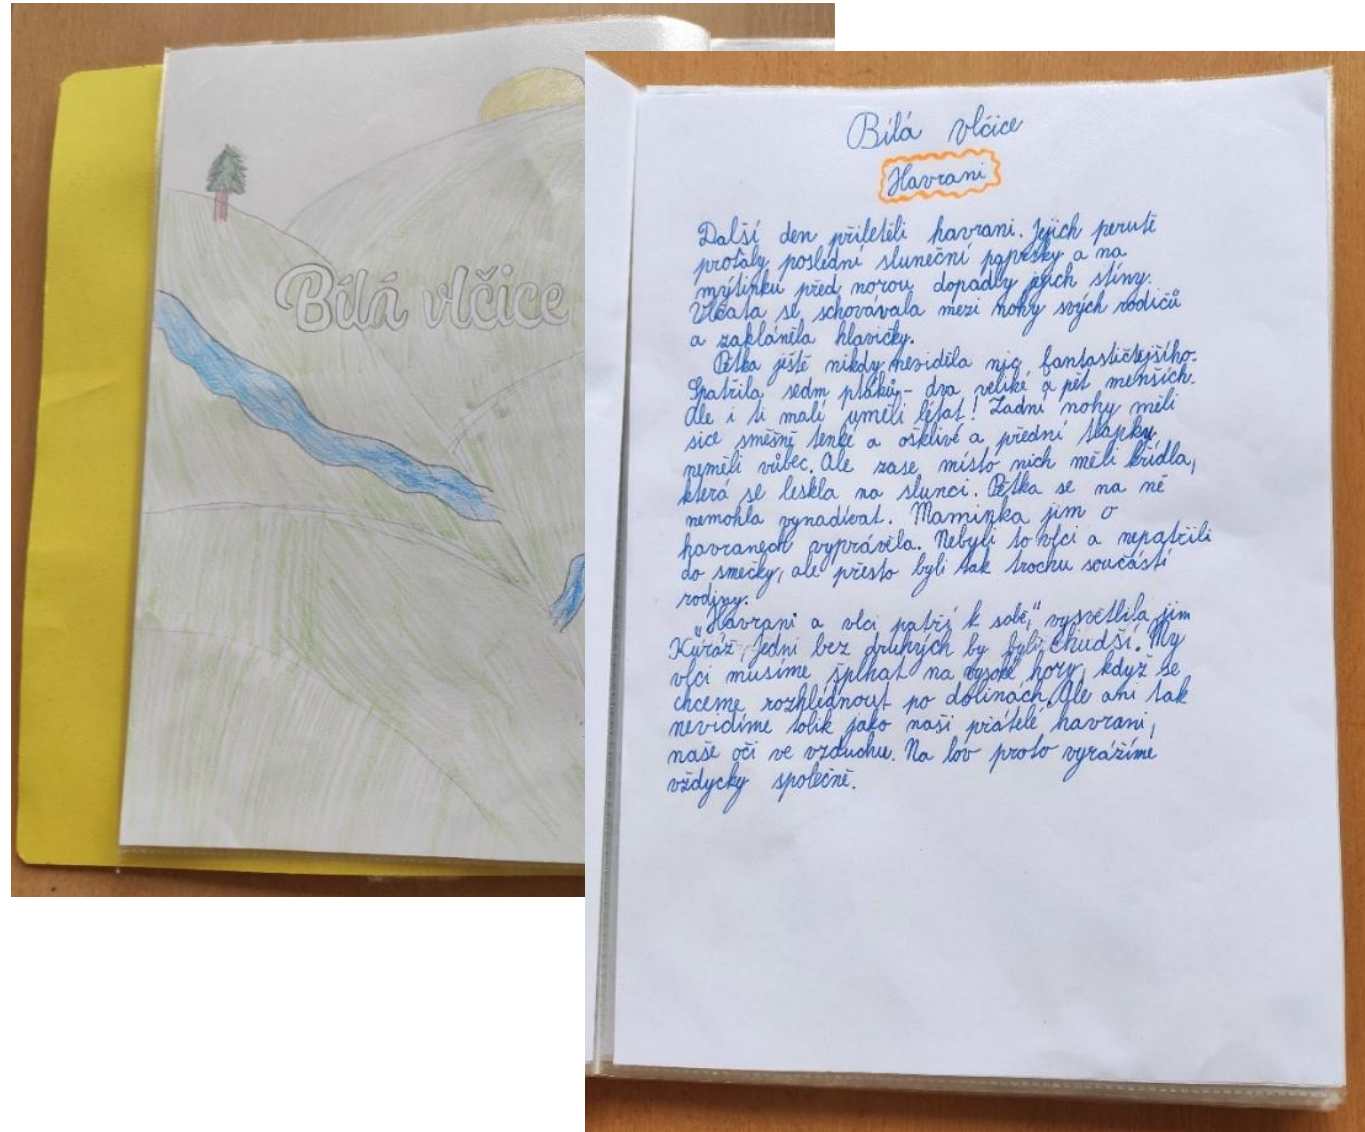 Bílá vlčice
Bílá vlčice
Havrani
Další den přiletěli havrani. Jejich perutě
proťaly poslední sluneční paprsky a na
mýtinku před norou dopadly jejich stíny.
Vlčata se schovávala mezi nohy svých rodičů
a zakláněla hlavičky.
Pětka ještě nikdy neviděla nic fantastičtejšího.
Spatřila sedm ptáků - dva veliké a pět menších.
Ale i ti malí uměli létat! Zadní nohy měli
sice směšně tenké a ošklivé a přední tlapky
neměli vůbec. Ale zase místo nich měli křídla,
která se leskla na slunci. Pětka se na ně
nemohla vynadívat. Maminka jim o
havranech vyprávěla. Nebyli to vlci a nepatřili
do smečky, ale přesto byli tak trochu součástí
rodiny.
"Havrani a vlci patří k sobě," vysvětlila jim
Kuráž, Jedni bez druhých by byli chudší. My
vlci musíme šplhat na vysoké hory, když se
chceme rozhlédnout po dolinach. Ale ani tak
nevidíme tolik jako naši přátelé havrani,
naše oči ve vzduchu. Na lov proto vyrážíme
vždycky společně.